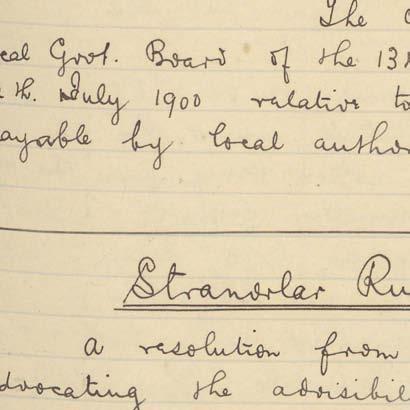 The
cal Govt. Board of the 13
th. July 1900 relative to
ayable by local author
Stranorlar Ru
a resolution from
dvocating the advisibil